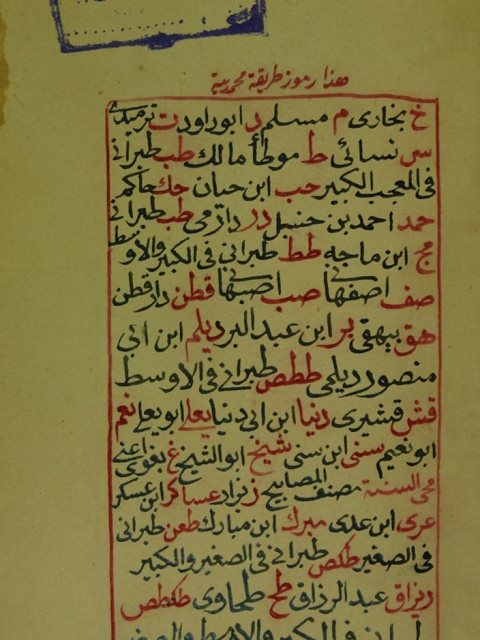 هذا رموز طريقة محمدية
خ بخارى م مسلم د ابوداود ت ترمذى
س نسائى ط موطأ مالك طب طبرانى
فى المعجب الكبير حب ابن حبان حك حاكم
حمد احمد بن حنبل در دارمى طب طبرانى
مج ابن ماجه طط طبرانى فى الكبير والاوسط
صف اصفهانى صب اصبهانى قطن دار قطن
هق بيهقى بر ابن عبد البر ديلم ابن ابى
منصور ديلمى ططص طبرانى فى الاوسط
قش قشيرى دنيا ابن ابى دنيا يعلى ابويعلى نعم
ابونعيم سنى ابن سنى شيخ ابوالشيخ غ بغوى اعنى
محى السنة مصنف المصابيح ز نزار عساكر ابن عسكر
عرى ابن عدى مبرك ابن مبارك طعن طبرانى
فى الصغير طكص طبرانى فى الصغير والكبير
ريزاق عبد الرزاق طح طحاوى طكطص